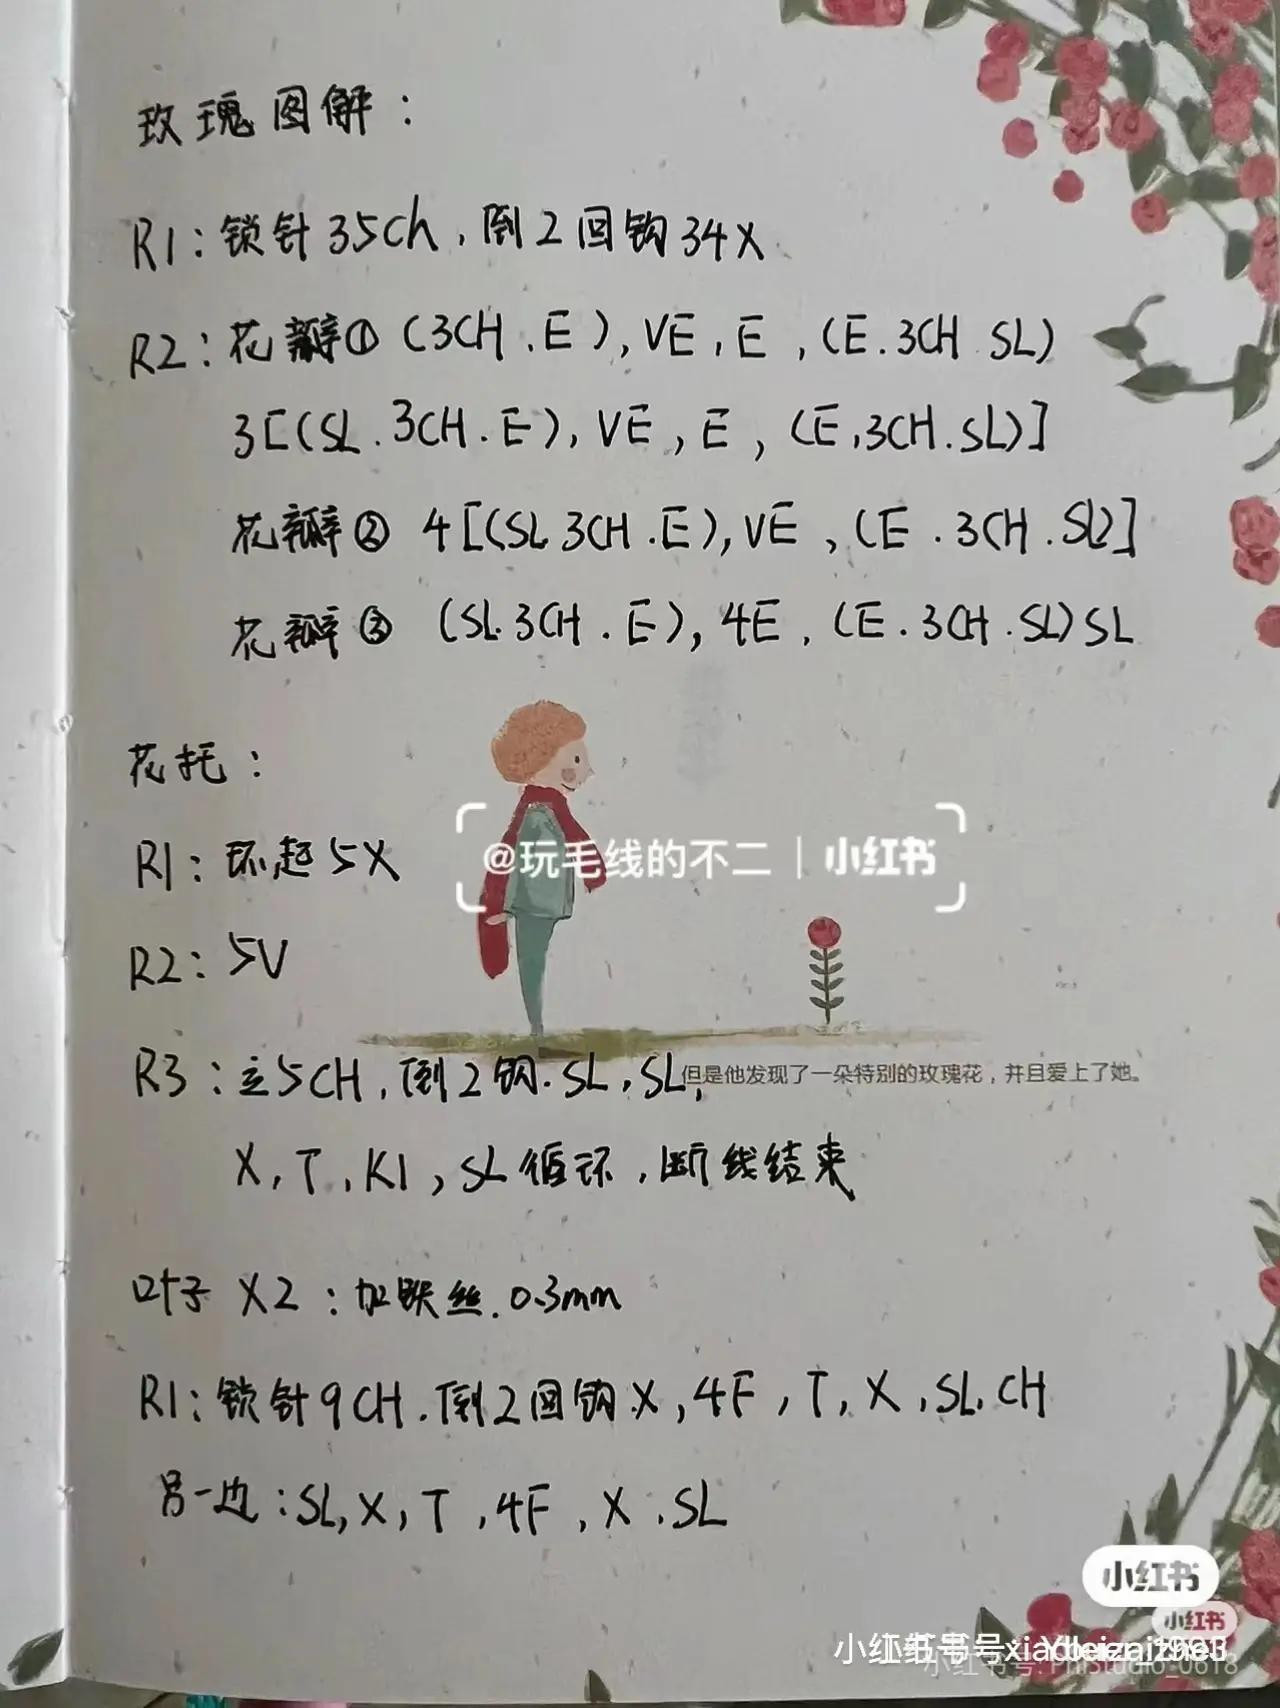 玫瑰图解：
R1：锁针35Ch，倒2回钩34X
R2：花瓣①（3CH.E），VE，E，（E.3CH SL）
3[（SL.3CH.E），VE，E，（E，3CH.SL）]
花瓣② 4[（SL 3CH.E），VE，（E.3CH.SL）]
花瓣③ （SL.3CH.E），4E，（E.3CH.SL）SL
花托：
R1：环起5X
@玩毛线的不二 | 小红书
R2：5V
R3：立5CH，倒2钩.SL，SL，
但是他发现了一朵特别的玫瑰花，并且爱上了她。
X，T，K1，SL循环，断线结束
叶子X2：加铁丝.0.3mm
R1：锁针9CH.倒2回钩X，4F，T，X，SL，CH
另一边：SL，X，T，4F，X.SL
小红书
小红书
小红书号
小红书号: PhiStudio_0618